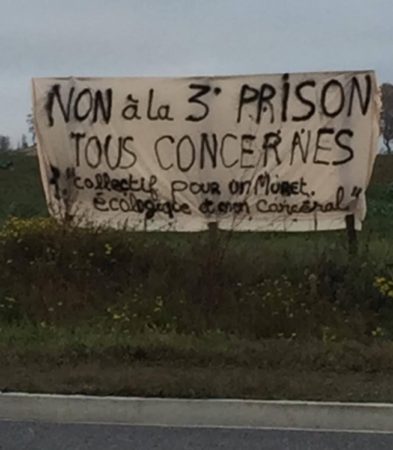 NON à la 3e PRISON
TOUS CONCERNES
"collectif pour un Muret.
écologique et non carcéral"